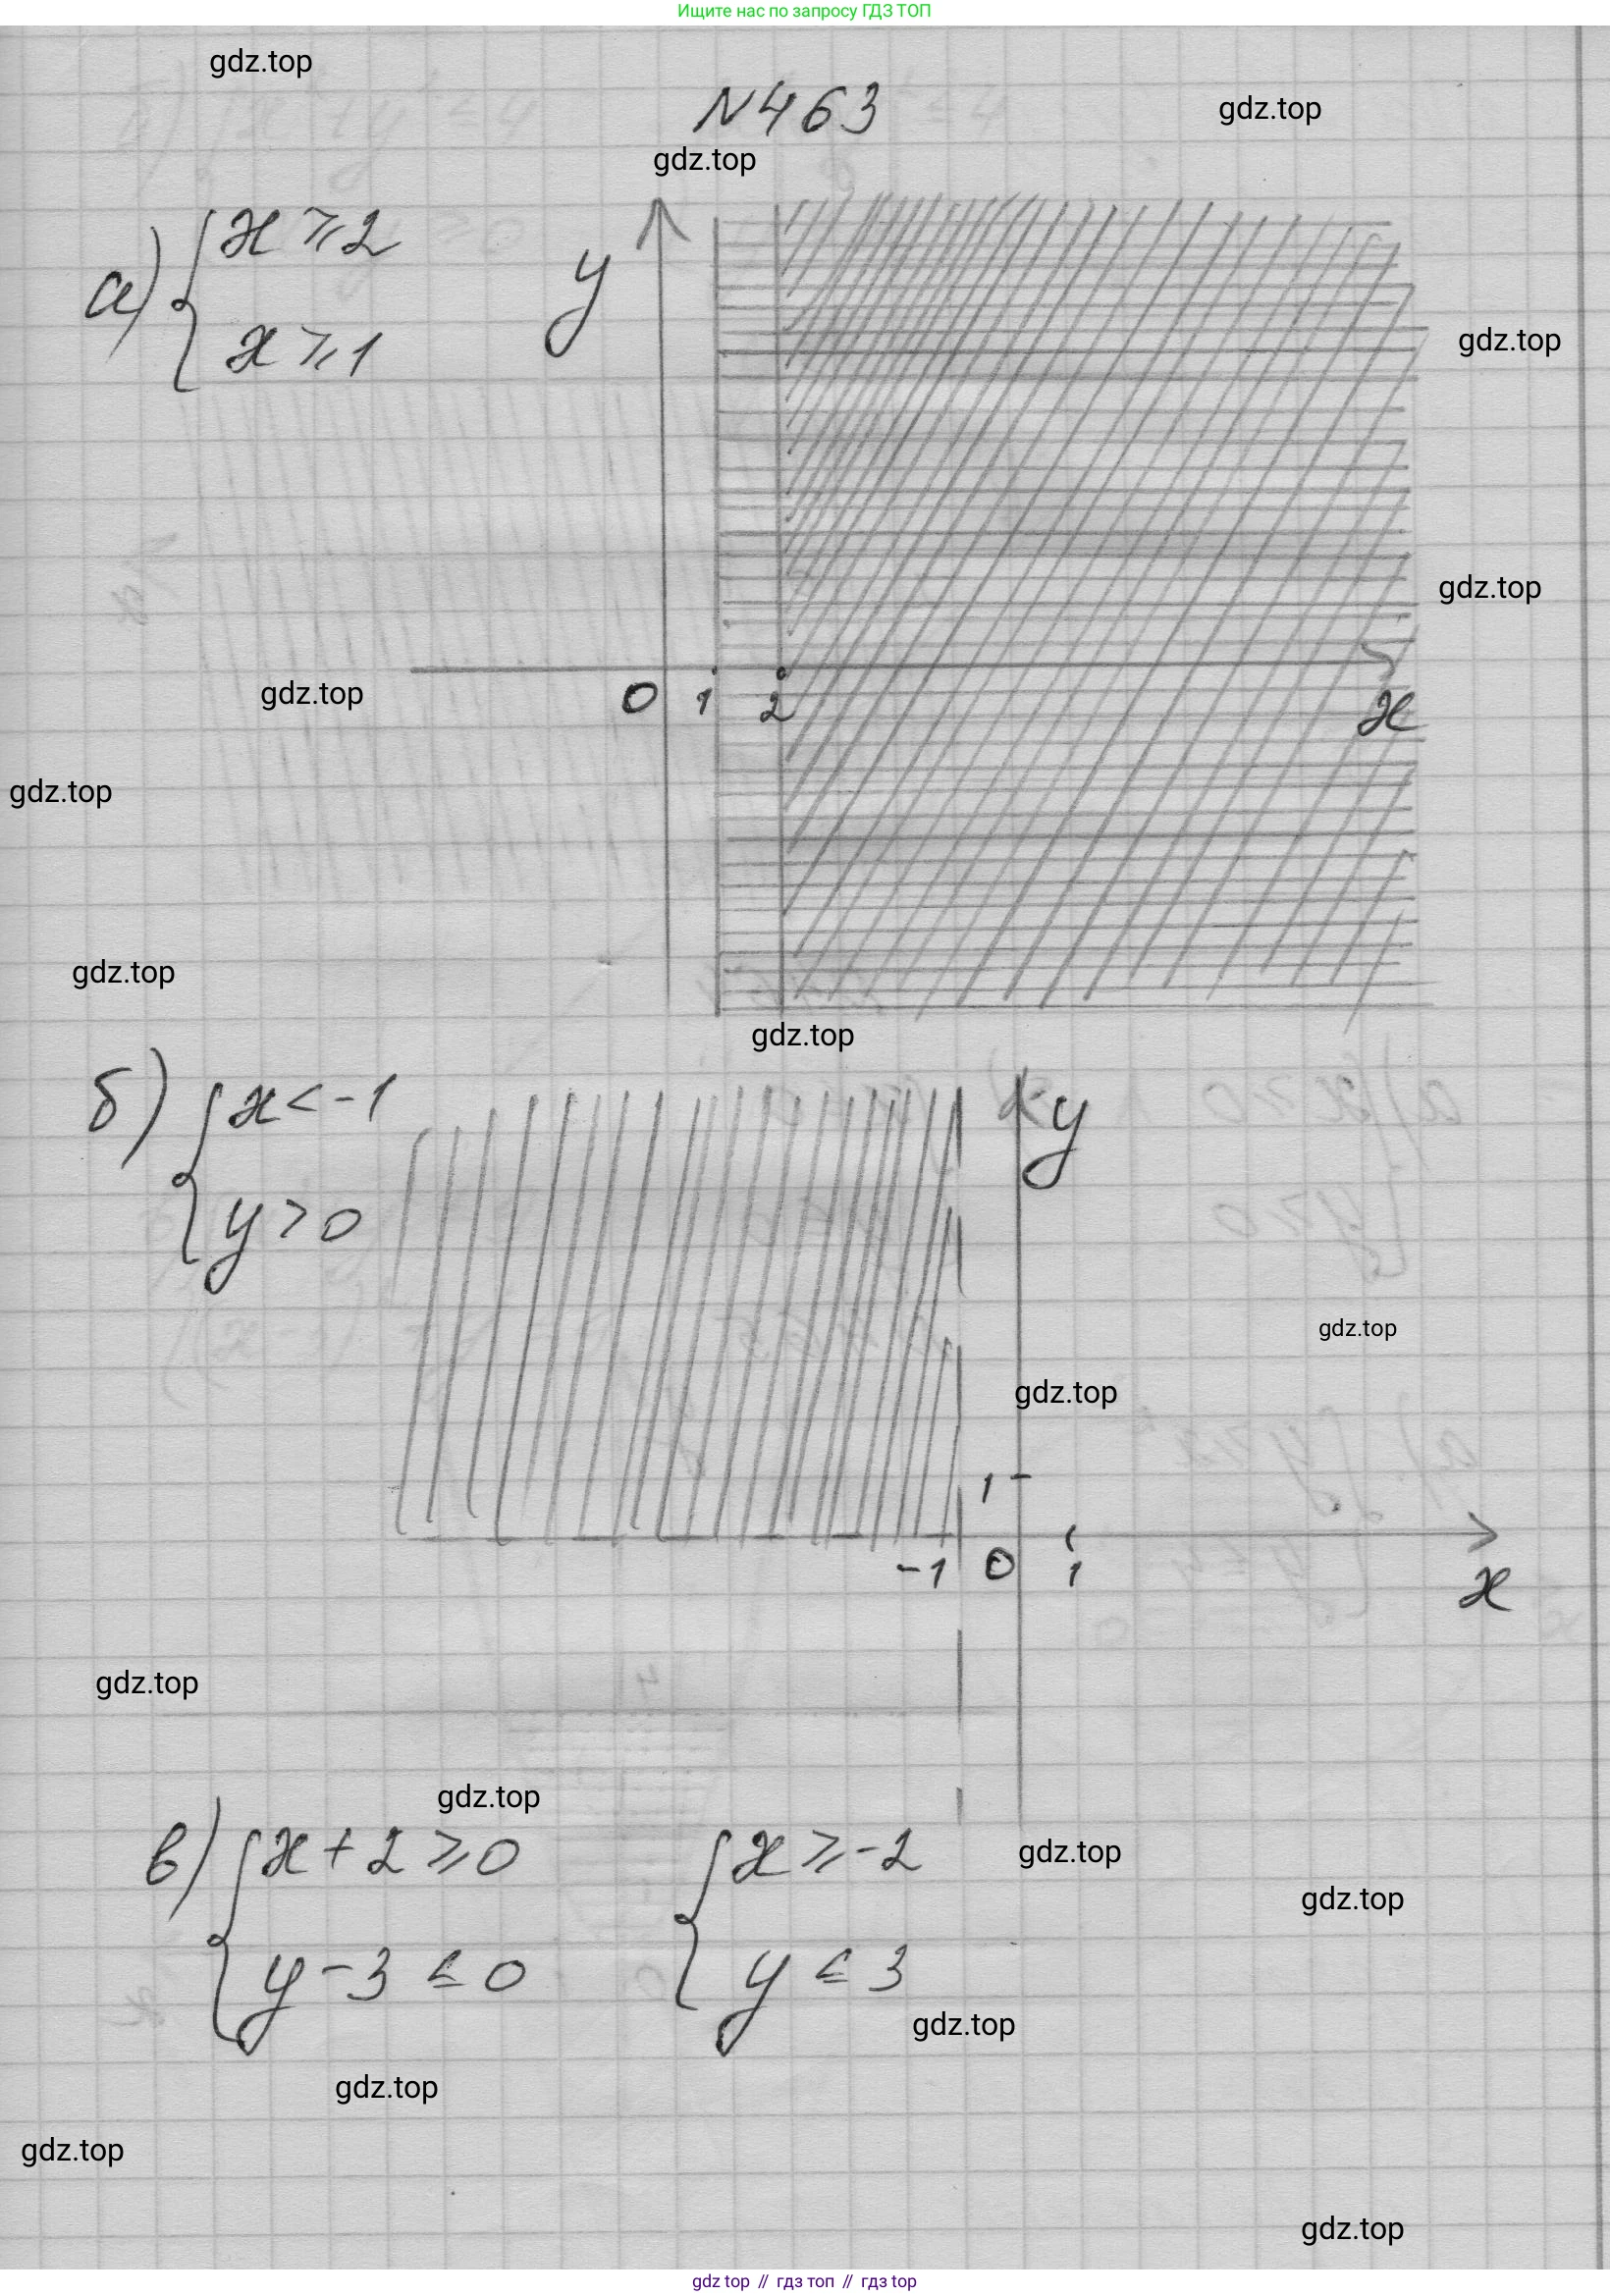 Ищите нас по запросу ГДЗ ТОП
gdz.top
N463
gdz.top
gdz.top
а) { x ⩾ 2
x ⩾ 1
y
gdz.top
gdz.top
gdz.top
0 1 2
x
gdz.top
gdz.top
gdz.top
б) { x < -1
y > 0
y
gdz.top
gdz.top
1
-1 0 1
x
gdz.top
gdz.top
в) { x + 2 ⩾ 0 { x ⩾ -2
gdz.top
gdz.top
y - 3 ≤ 0 y ≤ 3
gdz.top
gdz.top
gdz.top
gdz.top
gdz top // гдз топ // гдз top